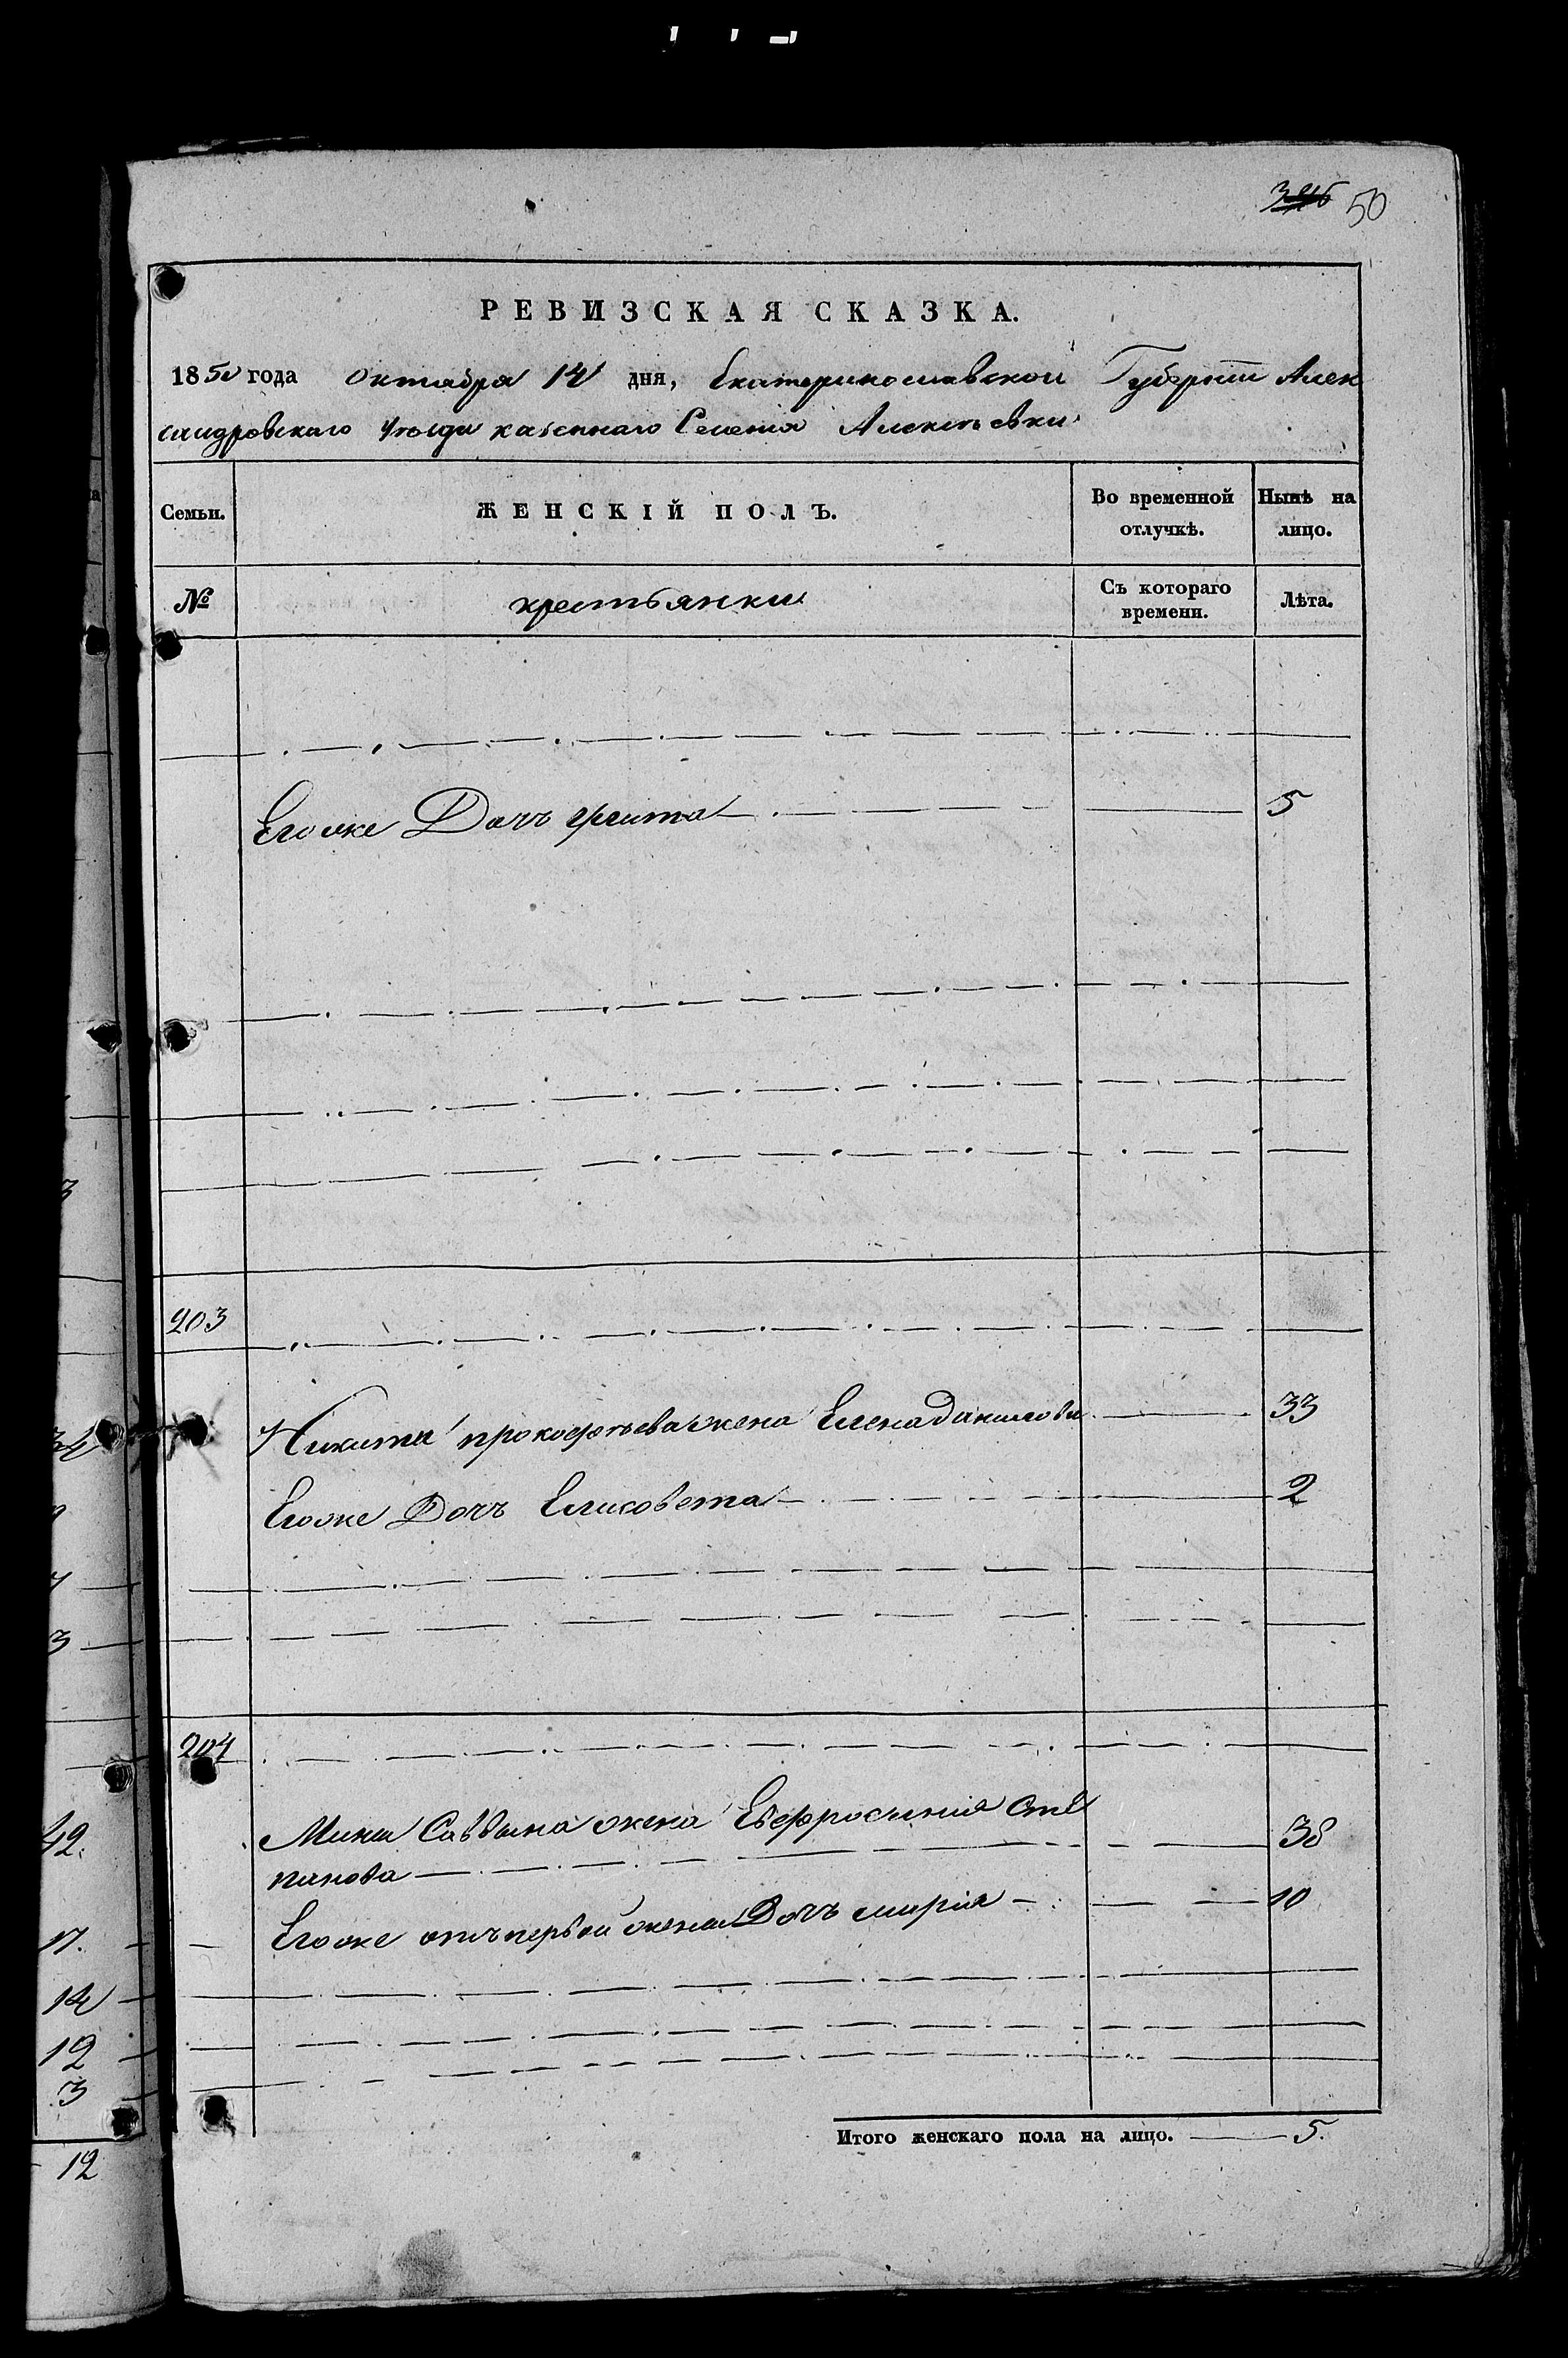 346 50
РЕВИЗСКАЯ СКАЗКА.
1850 года октября 14 дня, Екатеринославской Губернии Алек
сандровскаго уѣзда казеннаго Селенія Алексѣевки
Семьи. ЖЕНСКІЙ ПОЛЪ. Во временной отлучкѣ. Нынѣ на лицо.
№ крестьянки Съ котораго времени. Лѣта.
Егоже Дочъ 5
203
Никиты прокофьева жена Елена данилова 33
Егоже Дочъ Елисовета 2
204
Мины Саввина жена Евфросинія Сте
панова 38
Егоже отъ первой жены Дочъ марія 10
Итого женскаго пола на лицо. 5.
42.
17.
14
12
3
12